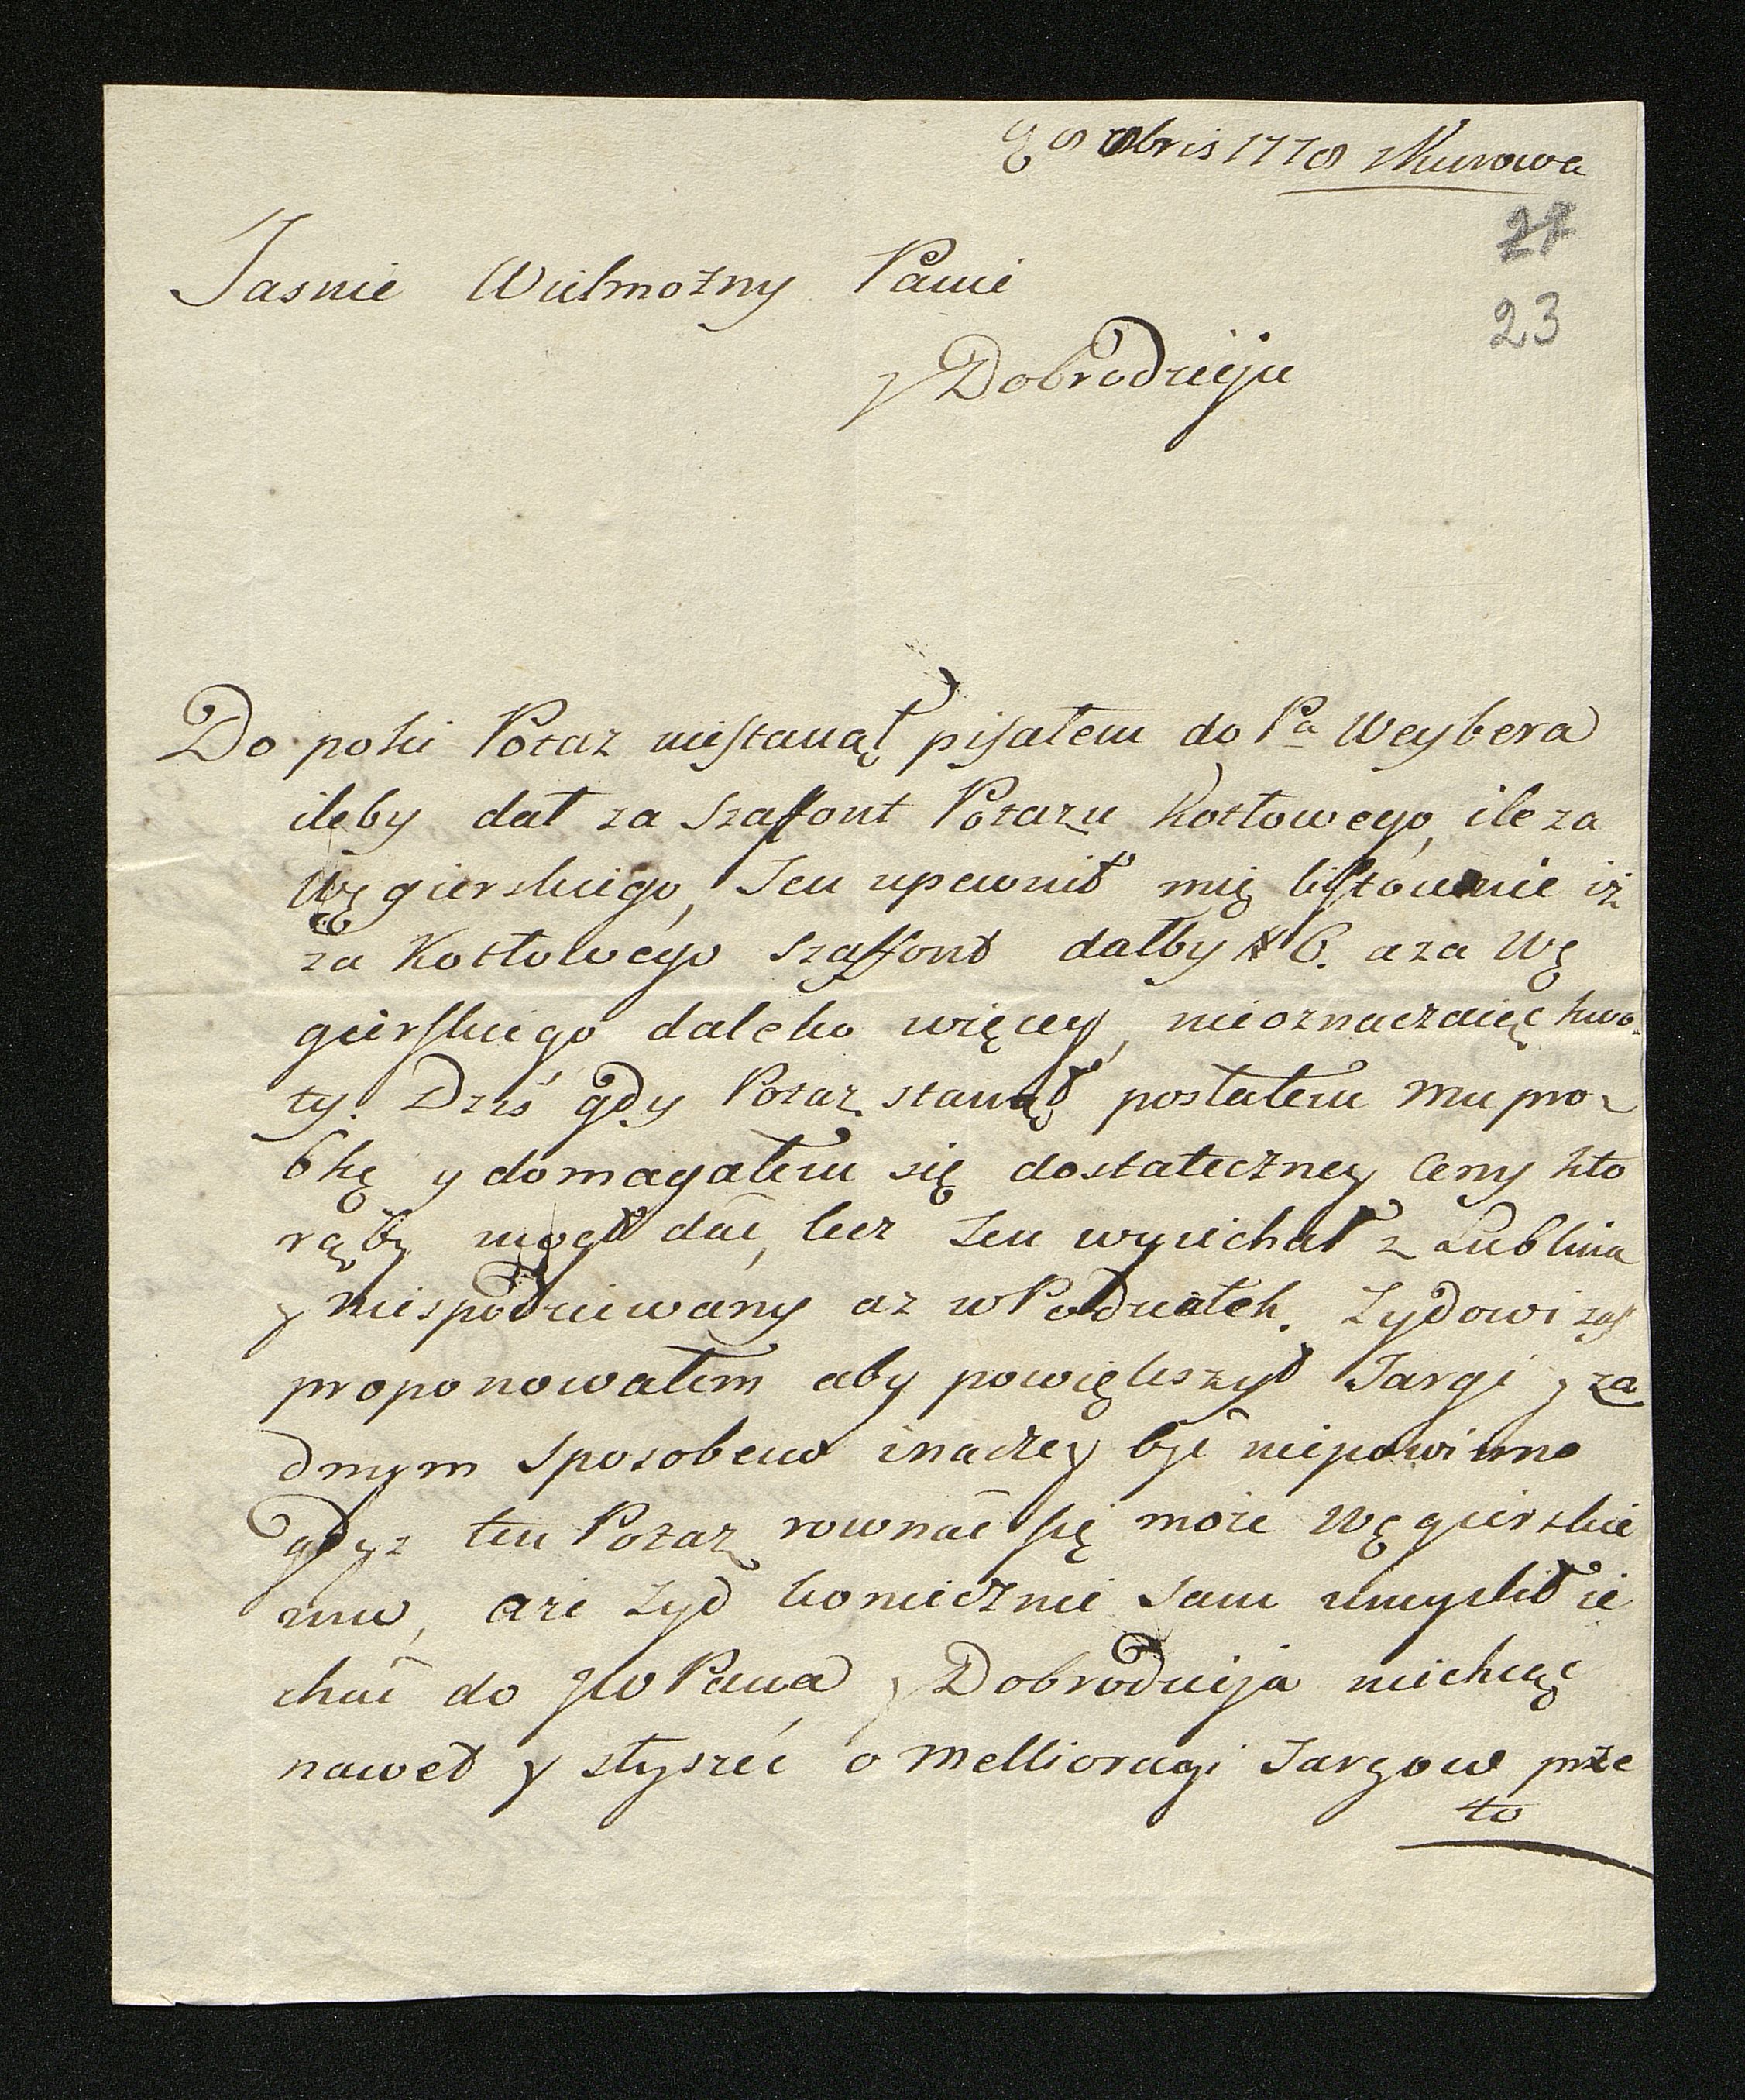 8bris 1778 Murowa
27
23
Jasnie Wielmozny Panie
y Dobrodzieju
Do poki Potaz niestanął pisałem do Pa Weybera
ileby dał za Szaffont Potazu Kotłowego, ile za
Węgierskiego, Ten upewnił mię listównie iż
za Kotłowego Szaffont dałby # 6. a za Wę
gierskiego daleko więcey, nieoznaczaiąc kwo-
ty. Dziś gdy Potaz stanął posłałem mu pro-
bkę y domagałem się dostateczney Ceny kto
rąby mogł dać, lecz Ten wyiechał z Lublina
y niespodziewany az w Poduiałek. Zydowi zas
proponowałem aby powiększył Targi y za
dnym sposobem inaczey być niepowinno
gdyz ten Potaz rownać się moze Węgierskie
mu, aze Zyd koniecznie sam umyslił ie
chać do JW Pana y Dobrodzieja niechcąc
nawet y słyszeć o Mellioracyi Targow prze
to